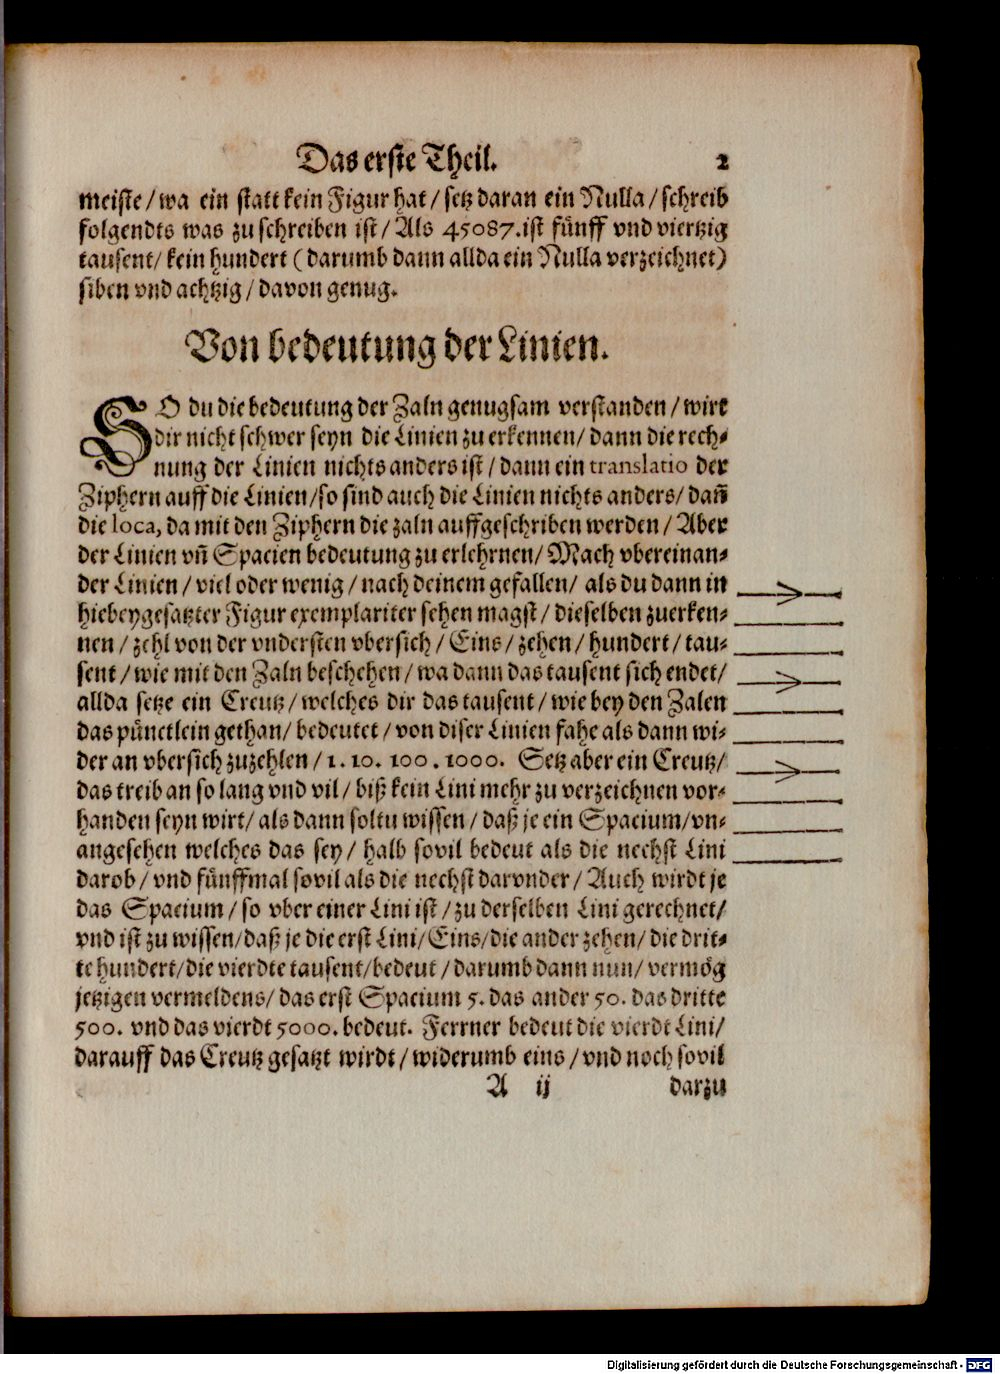 Das erste Theil. 2
meiste/wa ein statt kein Figur hat/setz daran ein Nulla/schreib
folgendts was zu schreiben ist/Als 45087.ist fünff vnd viertzig
tausent/kein hundert (darumb dann allda ein Nulla verzeichnet)
siben vnd achtzig/davon genug.
Von bedeutung der Linien.
SO du die bedeutung der Zaln genugsam verstanden/wirt
dir nicht schwer seyn die Linien zu erkennen/dann die rech-
nung der Linien nichts anders ist/dann ein translatio der
Ziphern auff die Linien/so sind auch die Linien nichts anders/dañ
die loca, da mit den Ziphern die zaln auffgeschriben werden/Aber
der Linien vñ Spacien bedeutung zu erlehrnen/Mach vbereinan-
der Linien/viel oder wenig/nach deinem gefallen/als du dann in
hiebeygesatzter Figur exemplariter sehen magst/dieselben zuerken-
nen/zehl von der vndersten vbersich/Eins/zehen/hundert/tau-
sent/wie mit den Zaln beschehen/wa dann das tausent sich endet/
allda setze ein Creutz/welches dir das tausent/wie bey den Zalen
das pünctlein gethan/bedeutet/von diser Linien fahe als dann wi-
der an vbersich zuzehlen/1.10.100.1000. Setz aber ein Creutz/
das treib an so lang vnd vil/biß kein Lini mehr zu verzeichnen vor-
handen seyn wirt/als dann soltu wissen/daß je ein Spacium/vn-
angesehen welches das sey/halb sovil bedeut als die nechst Lini
darob/vnd fünffmal sovil als die nechst darvnder/Auch wirdt je
das Spacium/so vber einer Lini ist/zu derselben Lini gerechnet/
vnd ist zu wissen/daß je die erst Lini/Eins/die ander zehen/die drit-
te hundert/die vierdte tausent/bedeut/darumb dann nun/vermög
jetzigen vermeldens/das erst Spacium 5. das ander 50. das dritte
500. vnd das vierdt 5000. bedeut. Ferrner bedeut die vierdt Lini/
darauff das Creutz gesatzt wirdt/widerumb eins/vnd noch sovil
A ij darzu
Digitalisierung gefördert durch die Deutsche Forschungsgemeinschaft - DFG